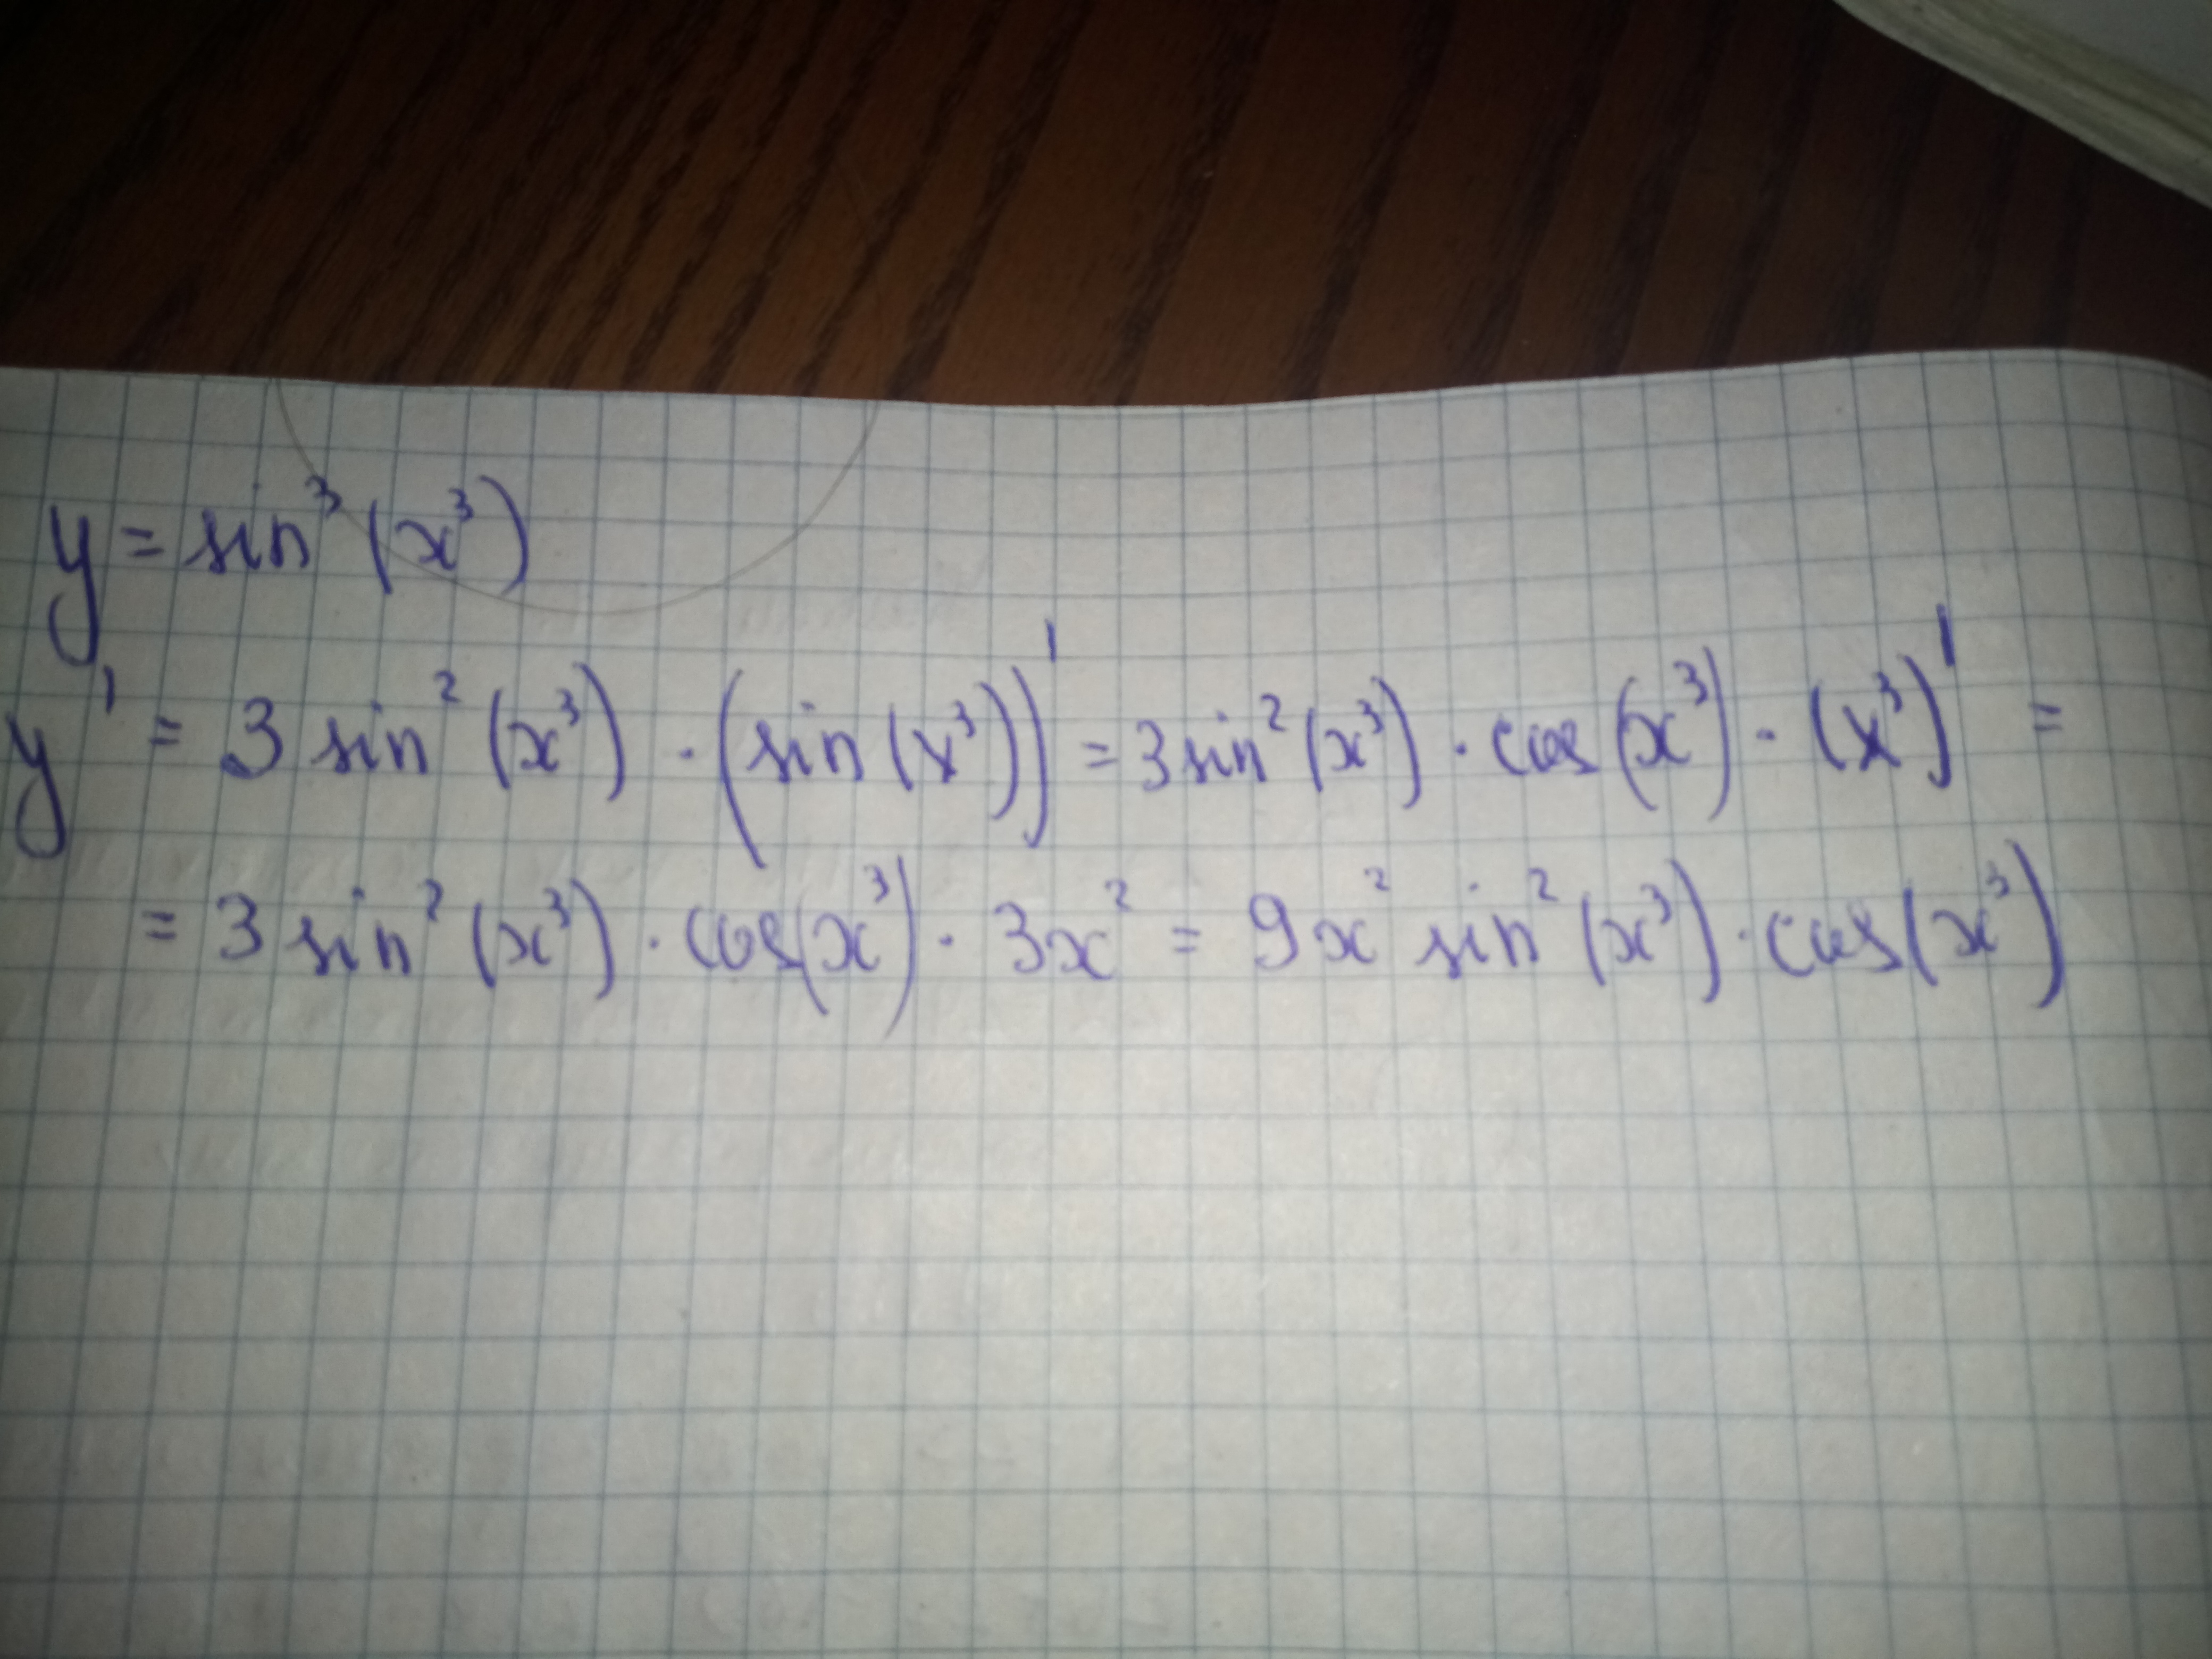 y = sin³ (x³)
y' = 3 sin² (x³) · (sin (x³))' = 3 sin² (x³) · cos (x³) · (x³)' =
= 3 sin² (x³) · cos (x³) · 3x² = 9x² sin² (x³) · cos (x³)